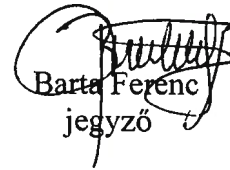 Barta Ferenc
jegyző